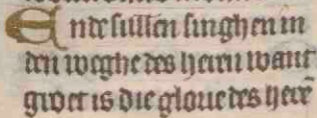 Ende sullen singhen in
den weghe des heren want
groet is die glorie des herē